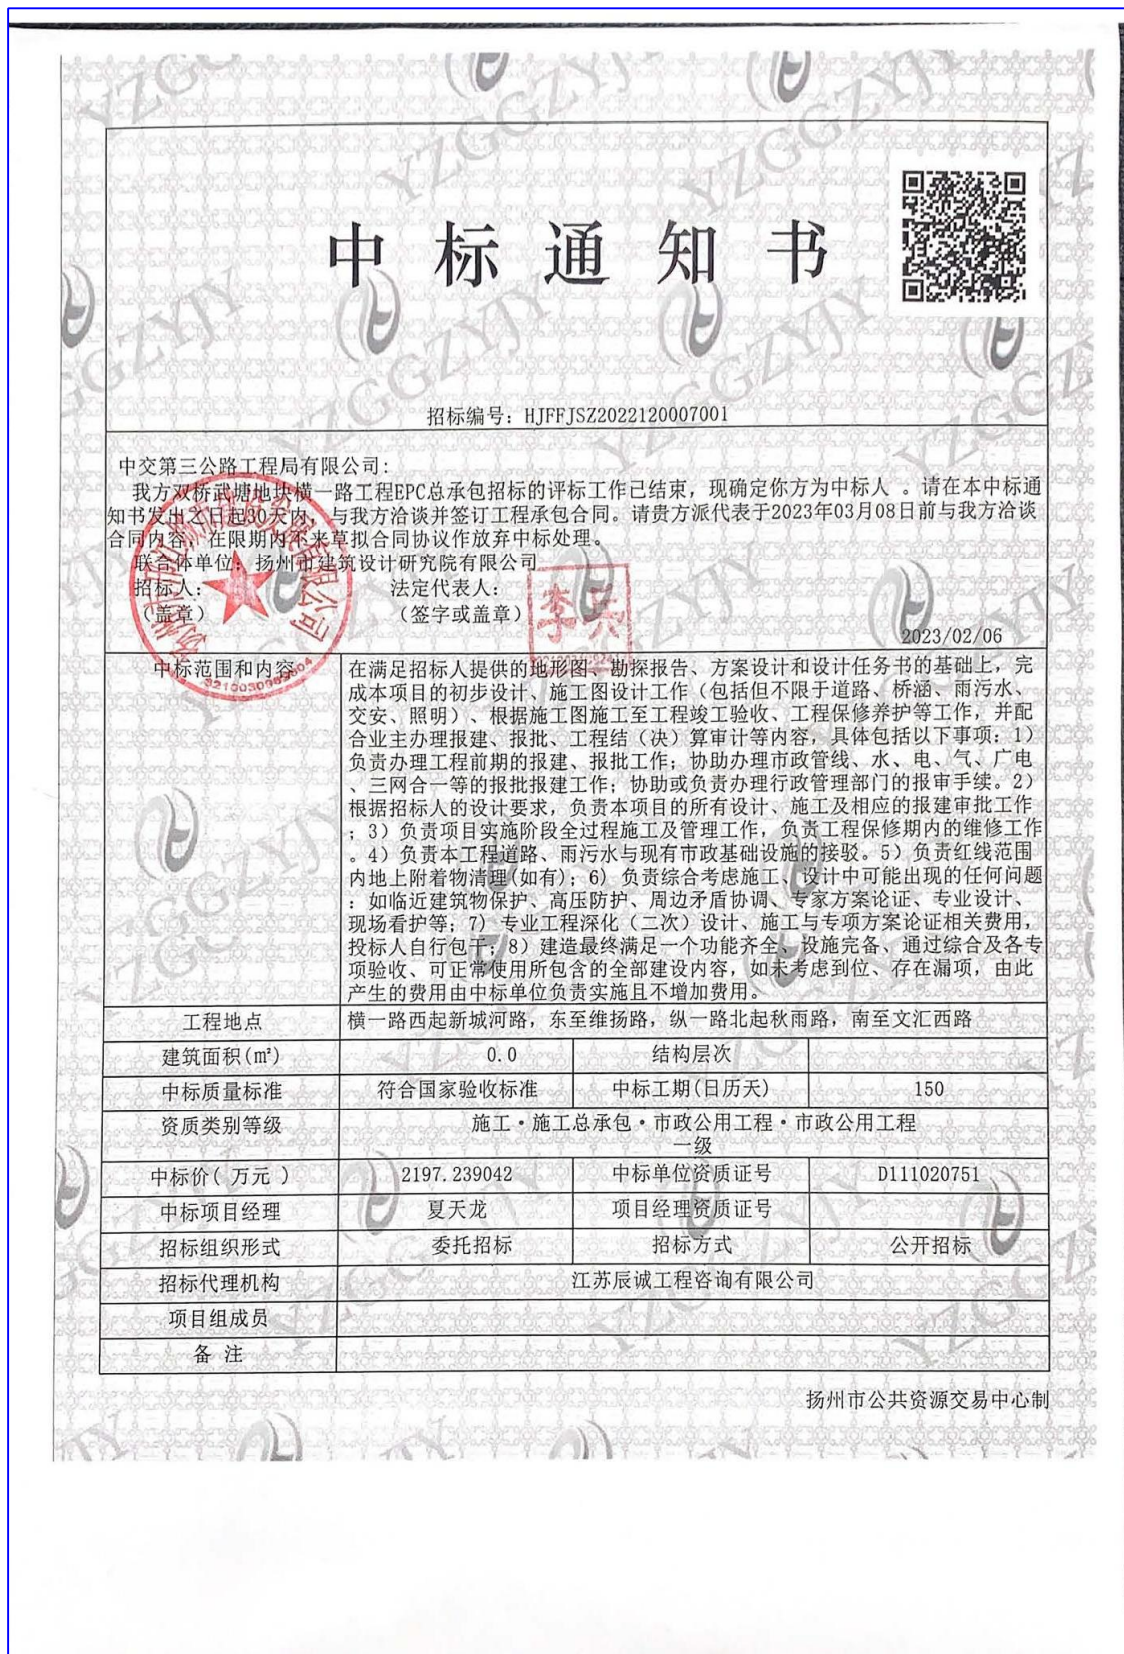 中标通知书
招标编号：HJFFJSZ2022120007001
中交第三公路工程局有限公司：
我方双桥武塘地块横一路工程EPC总承包招标的评标工作已结束，现确定你方为中标人 。请在本中标通
知书发出之日起30天内，与我方洽谈并签订工程承包合同。请贵方派代表于2023年03月08日前与我方洽谈
合同内容，在限期内不来草拟合同协议作放弃中标处理。
联合体单位：扬州市建筑设计研究院有限公司
招标人： 法定代表人：
（盖章） （签字或盖章）
2023/02/06
中标范围和内容
在满足招标人提供的地形图、勘探报告、方案设计和设计任务书的基础上，完
成本项目的初步设计、施工图设计工作（包括但不限于道路、桥涵、雨污水、
交安、照明）、根据施工图施工至工程竣工验收、工程保修养护等工作，并配
合业主办理报建、报批、工程结（决）算审计等内容，具体包括以下事项：1）
负责办理工程前期的报建、报批工作；协助办理市政管线、水、电、气、广电
、三网合一等的报批报建工作；协助或负责办理行政管理部门的报审手续。2）
根据招标人的设计要求，负责本项目的所有设计、施工及相应的报建审批工作
；3）负责项目实施阶段全过程施工及管理工作，负责工程保修期内的维修工作
。4）负责本工程道路、雨污水与现有市政基础设施的接驳。5）负责红线范围
内地上附着物清理(如有)；6）负责综合考虑施工、设计中可能出现的任何问题
：如临近建筑物保护、高压防护、周边矛盾协调、专家方案论证、专业设计、
现场看护等；7）专业工程深化（二次）设计、施工与专项方案论证相关费用，
投标人自行包干；8）建造最终满足一个功能齐全、设施完备、通过综合及各专
项验收、可正常使用所包含的全部建设内容，如未考虑到位、存在漏项，由此
产生的费用由中标单位负责实施且不增加费用。
工程地点 横一路西起新城河路，东至维扬路，纵一路北起秋雨路，南至文汇西路
建筑面积(㎡) 0.0 结构层次
中标质量标准 符合国家验收标准 中标工期(日历天) 150
资质类别等级 施工·施工总承包·市政公用工程·市政公用工程
一级
中标价( 万元 ) 2197.239042 中标单位资质证号 D111020751
中标项目经理 夏天龙 项目经理资质证号
招标组织形式 委托招标 招标方式 公开招标
招标代理机构 江苏辰诚工程咨询有限公司
项目组成员
备 注
扬州市公共资源交易中心制